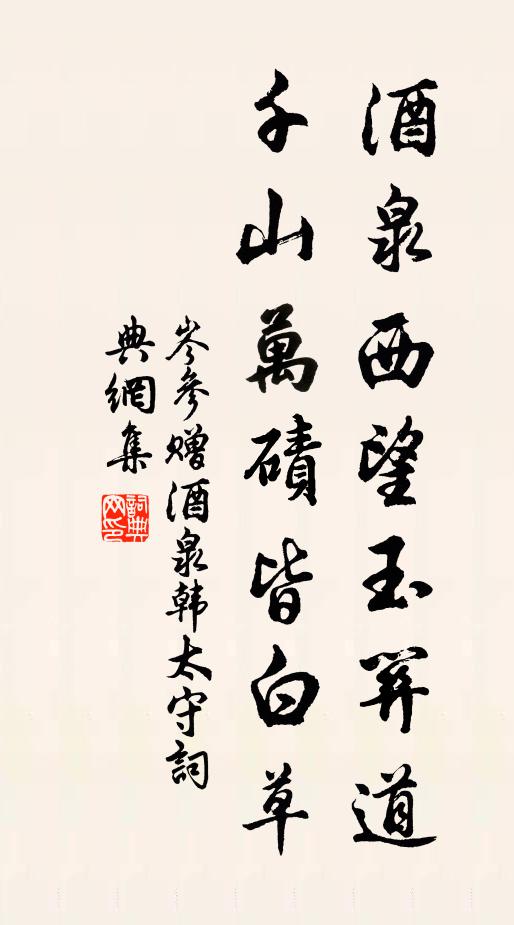 酒泉西望玉關道
千山萬磧皆白草
岑參贈酒泉韩太守詞
典網集
詞典網印